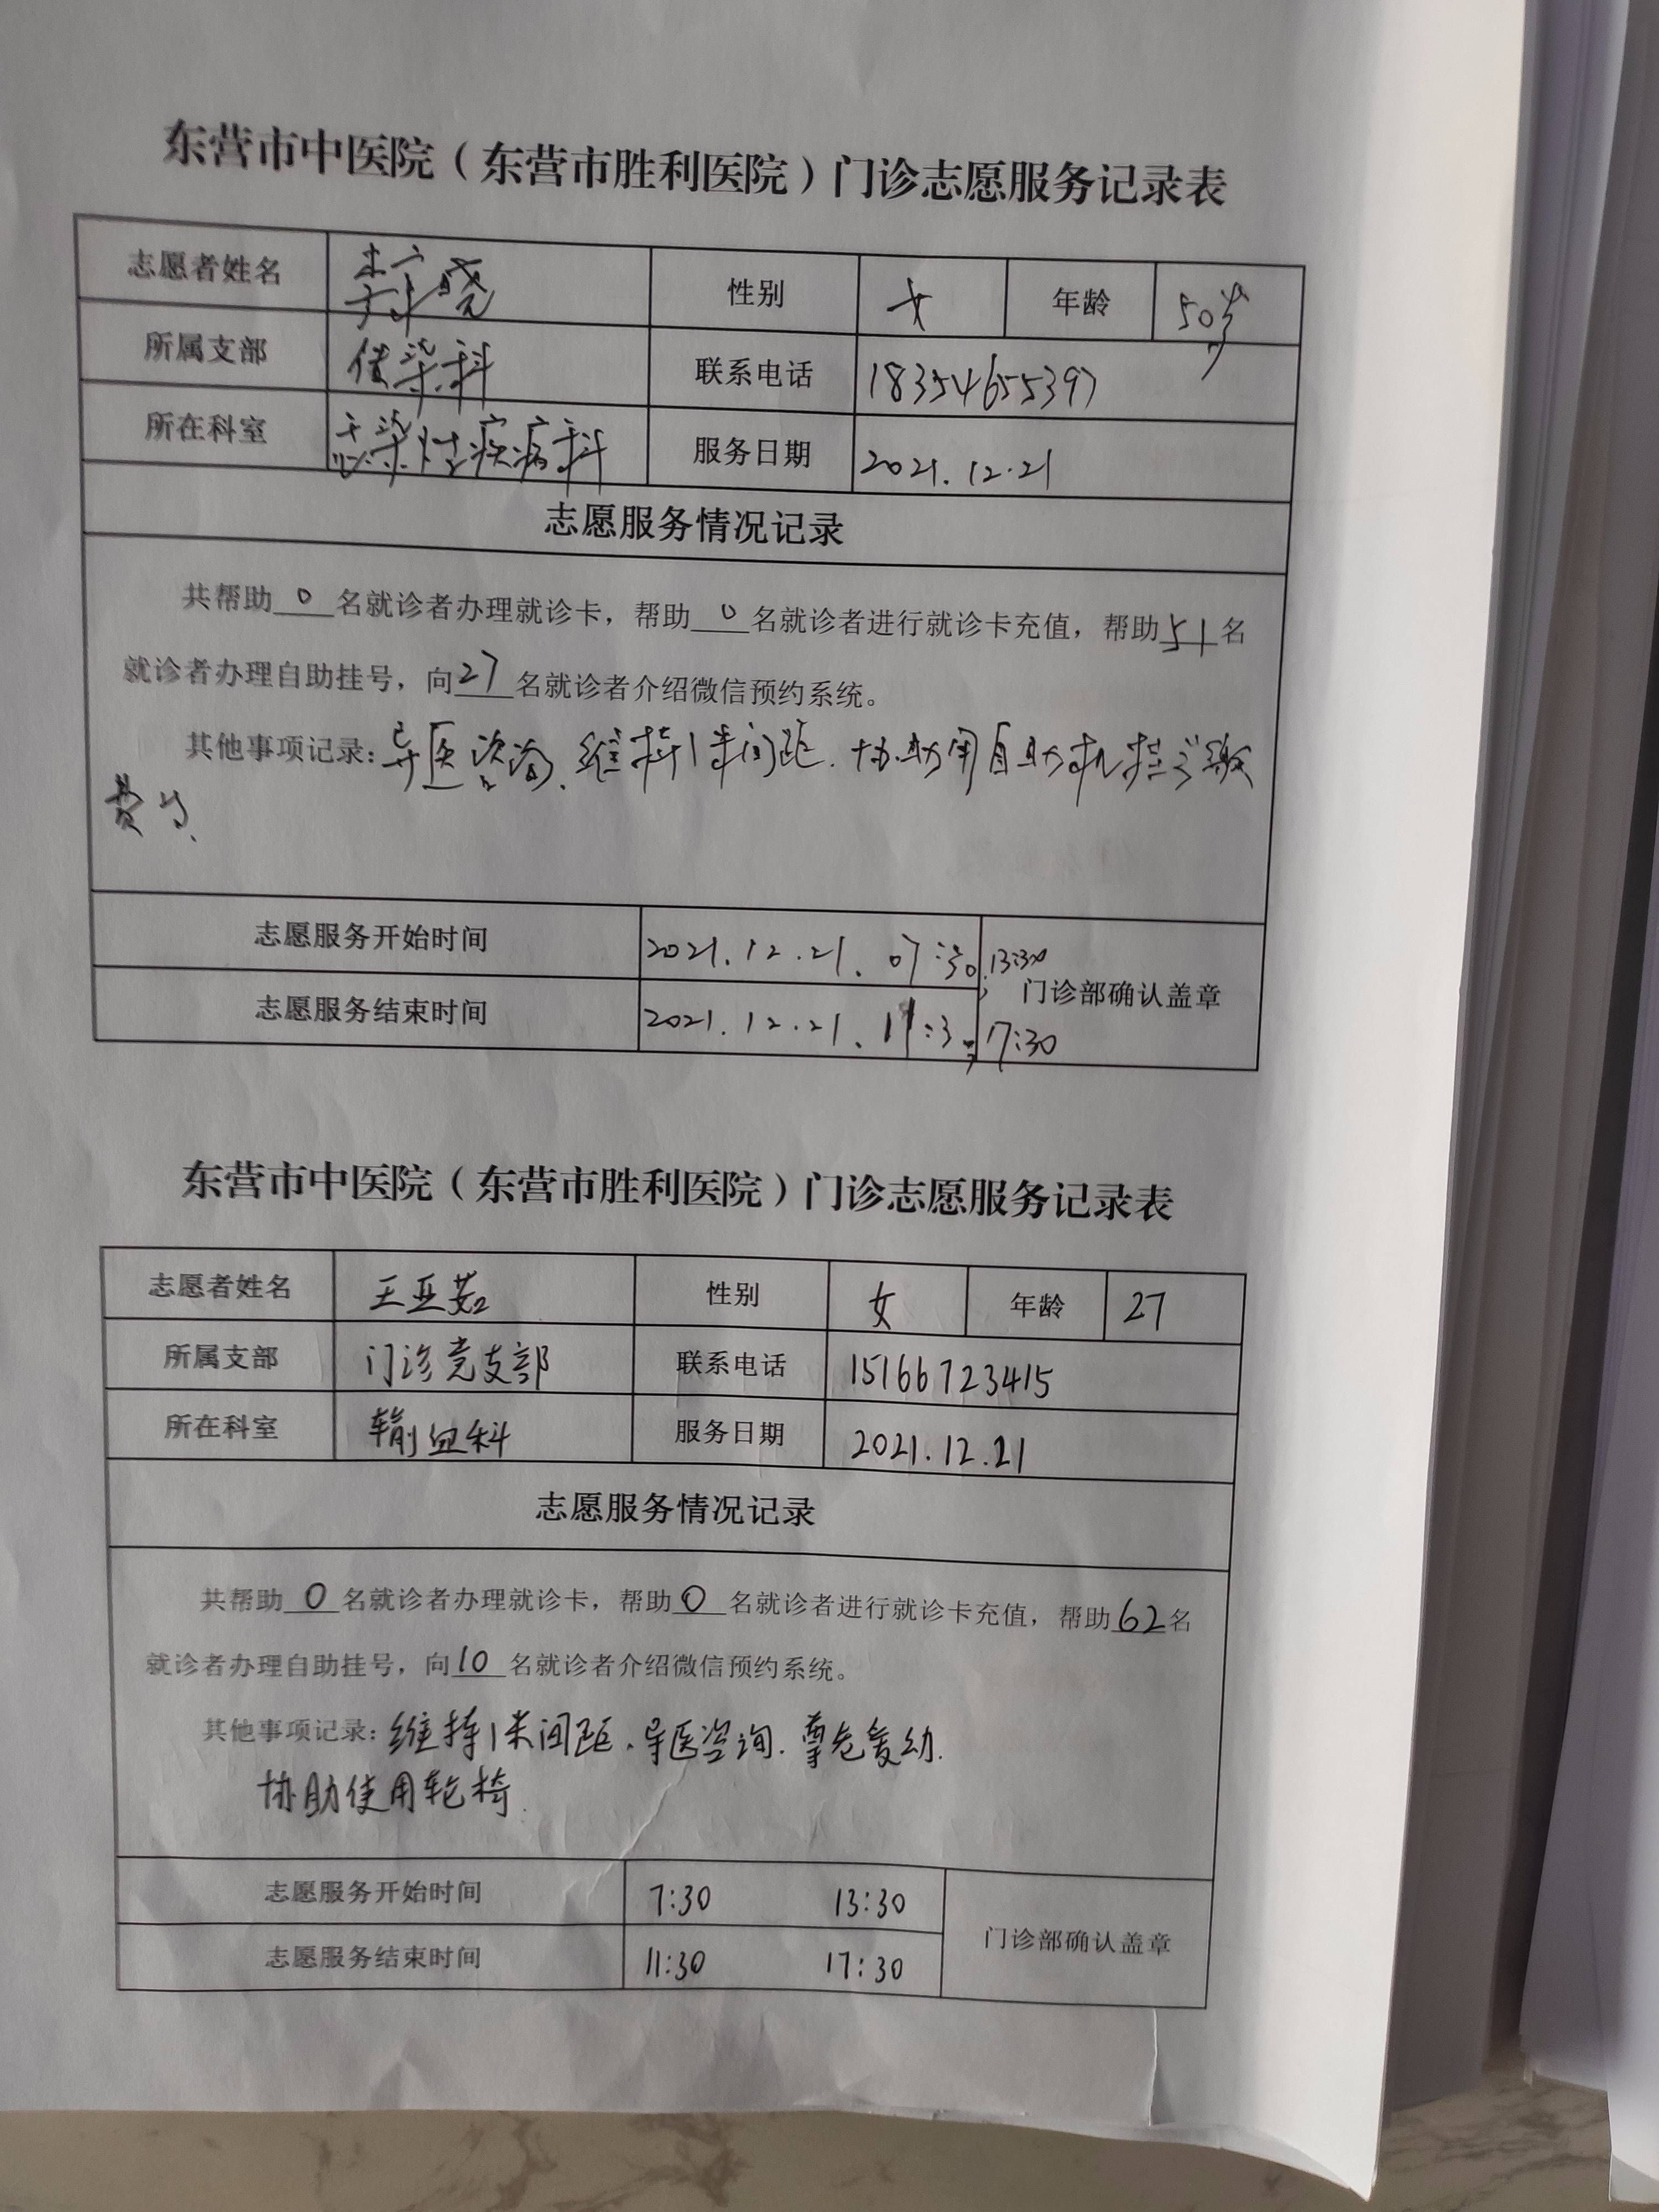 东营市中医院（东营市胜利医院）门诊志愿服务记录表
志愿者姓名 晓 性别 女 年龄 50岁
所属支部 传染科 联系电话 18354655397
所在科室 感染性疾病科 服务日期 2021.12.21
志愿服务情况记录
共帮助 0 名就诊者办理就诊卡，帮助 0 名就诊者进行就诊卡充值，帮助 51 名
就诊者办理自助挂号，向 27 名就诊者介绍微信预约系统。
其他事项记录：导医咨询、维持1米间距、协助用自助机挂号缴
费等、
志愿服务开始时间 2021.12.21. 07:30, 13:30
门诊部确认盖章
志愿服务结束时间 2021.12.21. 11:30, 17:30
东营市中医院（东营市胜利医院）门诊志愿服务记录表
志愿者姓名 王亚茹 性别 女 年龄 27
所属支部 门诊党支部 联系电话 15166723415
所在科室 输血科 服务日期 2021.12.21
志愿服务情况记录
共帮助 0 名就诊者办理就诊卡，帮助 0 名就诊者进行就诊卡充值，帮助 62 名
就诊者办理自助挂号，向 10 名就诊者介绍微信预约系统。
其他事项记录：维持1米间距、导医咨询、尊老爱幼.
协助使用轮椅.
志愿服务开始时间 7:30 13:30
门诊部确认盖章
志愿服务结束时间 11:30 17:30